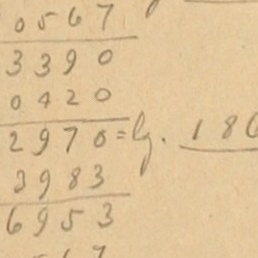 0567
3390
0420
2970 = lg. 186
3983
6953